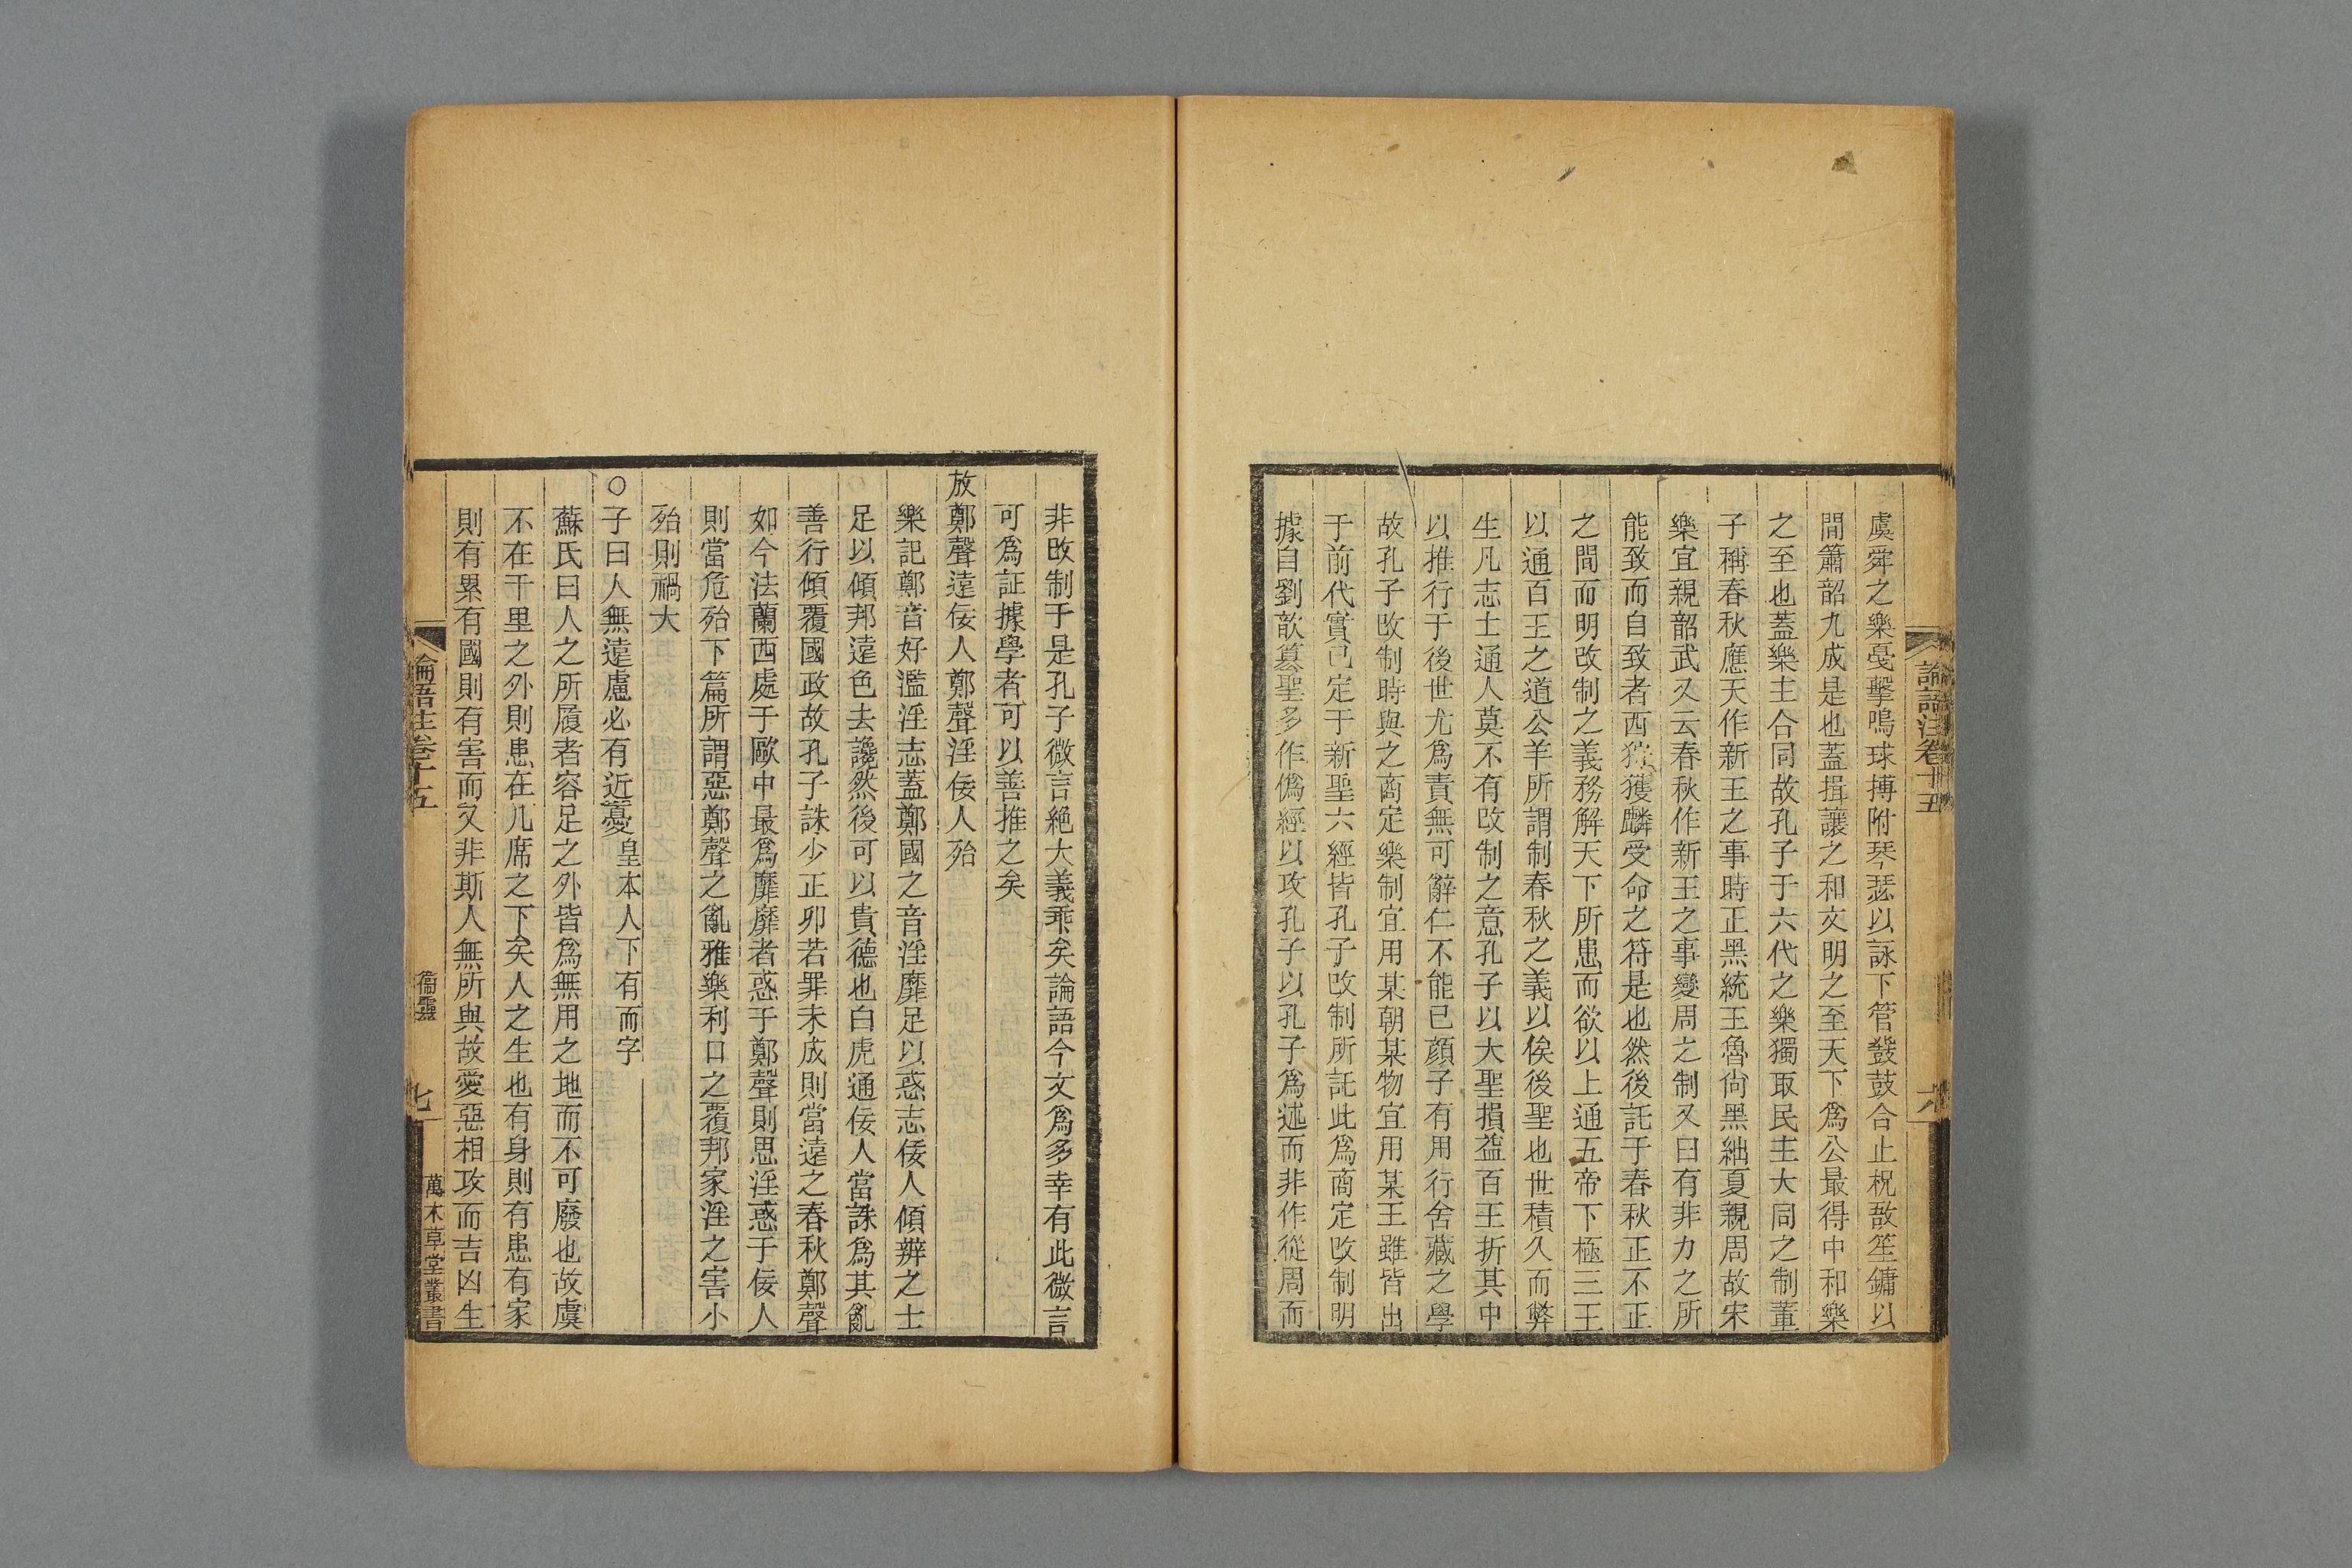 虞舜之樂戞擊鳴球搏附琴瑟以詠下管鼗鼓合止柷敔笙鏞以
間簫韶九成是也蓋揖讓之和文明之至天下爲公最得中和樂
之至也蓋樂主合同故孔子于六代之樂獨取民主大同之制董
子稱春秋應天作新王之事時正黑統王魯尙黑絀夏親周故宋
樂宜親韶武又云春秋作新王之事變周之制又曰有非力之所
能致而自致者西狩獲麟受命之符是也然後託于春秋正不正
之間而明改制之義務解天下所患而欲以上通五帝下極三王
以通百王之道公羊所謂制春秋之義以俟後聖也世積久而弊
生凡志士通人莫不有改制之意孔子以大聖損益百王折其中
以推行于後世尤爲責無可辭仁不能已顏子有用行舍藏之學
故孔子改制時與之商定樂制宜用某朝某物宜用某王雖皆出
于前代實已定于新聖六經皆孔子改制所託此爲商定改制明
據自劉歆簒聖多作僞經以攻孔子以孔子爲述而非作從周而
論語注卷十五
六
非改制于是孔子微言絶大義乖矣論語今文爲多幸有此微言
可爲証據學者可以善推之矣
放鄭聲遠佞人鄭聲淫佞人殆
樂記鄭音好濫淫志蓋鄭國之音淫靡足以惑志佞人傾辨之士
足以傾邦遠色去讒然後可以貴德也白虎通佞人當誅爲其亂
善行傾覆國政故孔子誅少正卯若罪未成則當遠之春秋鄭聲
如今法蘭西處于歐中最爲靡靡者惑于鄭聲則思淫惑于佞人
則當危殆下篇所謂惡鄭聲之亂雅樂利口之覆邦家淫之害小
殆則禍大
○子曰人無遠慮必有近憂皇本人下有而字
蘇氏曰人之所履者容足之外皆爲無用之地而不可廢也故慮
不在千里之外則患在几席之下矣人之生也有身則有患有家
則有累有國則有害而又非斯人無所與故愛惡相攻而吉凶生
論語注卷十五
衞靈
七
萬木草堂叢書